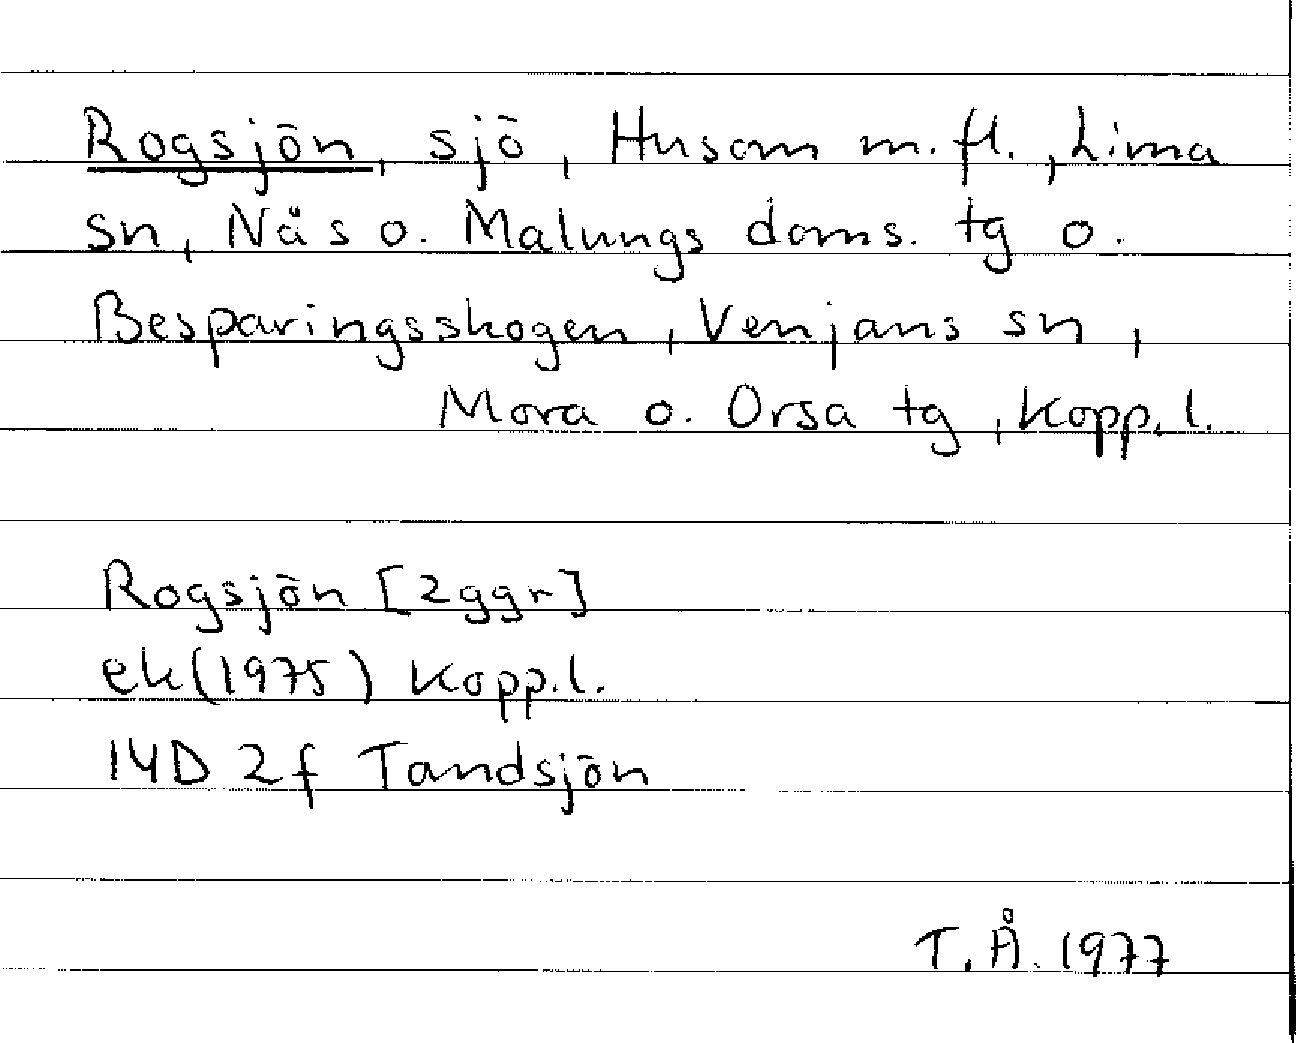 Rogsjön, sjö, Husom m.fl., Lima
sn, Näs o. Malungs doms. tg o.
Besparingsskogen, Venjans sn,
Mora o. Orsa tg, Kopp.l.
Rogsjön [2ggr]
ek(1975) Kopp.l.
14D 2f Tandsjön
T.Å. 1977